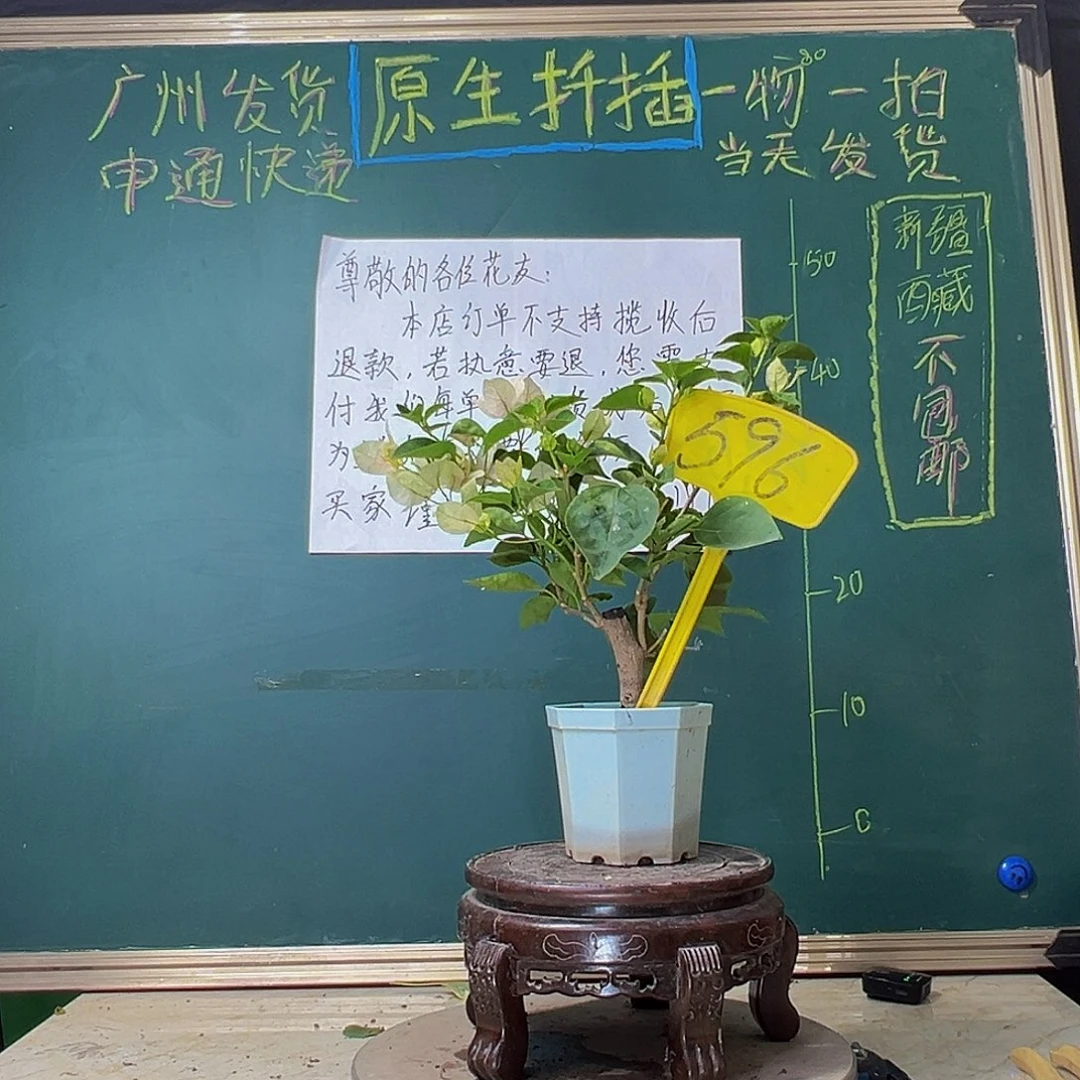 广州发货
原生扦插
一物一拍
申通快递
当天发货
新疆
西藏
不
包
邮
尊敬的各位花友:
本店订单不支持揽收后
退款,若执意要退,您需
付我们每单
为
买家
596
50
40
20
10
0